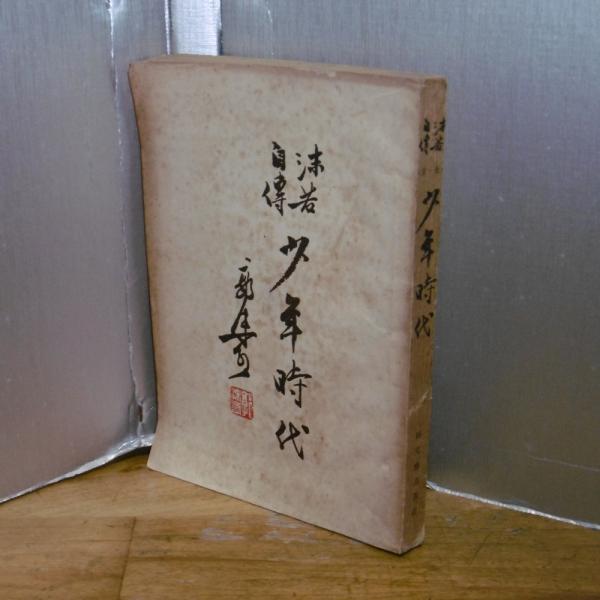 沫若
自傳
少年時代
沫若
自傳
少年時代